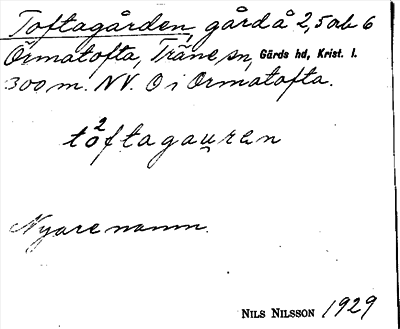 Toftagården, gård å 2,5 ab 6
Örmatofta, Träne sn, Gärds hd, Krist. l.
300 m. NV. O i Örmatofta.
tò2ftagau̯ren
Nyare namn.
NILS NILSSON 1929